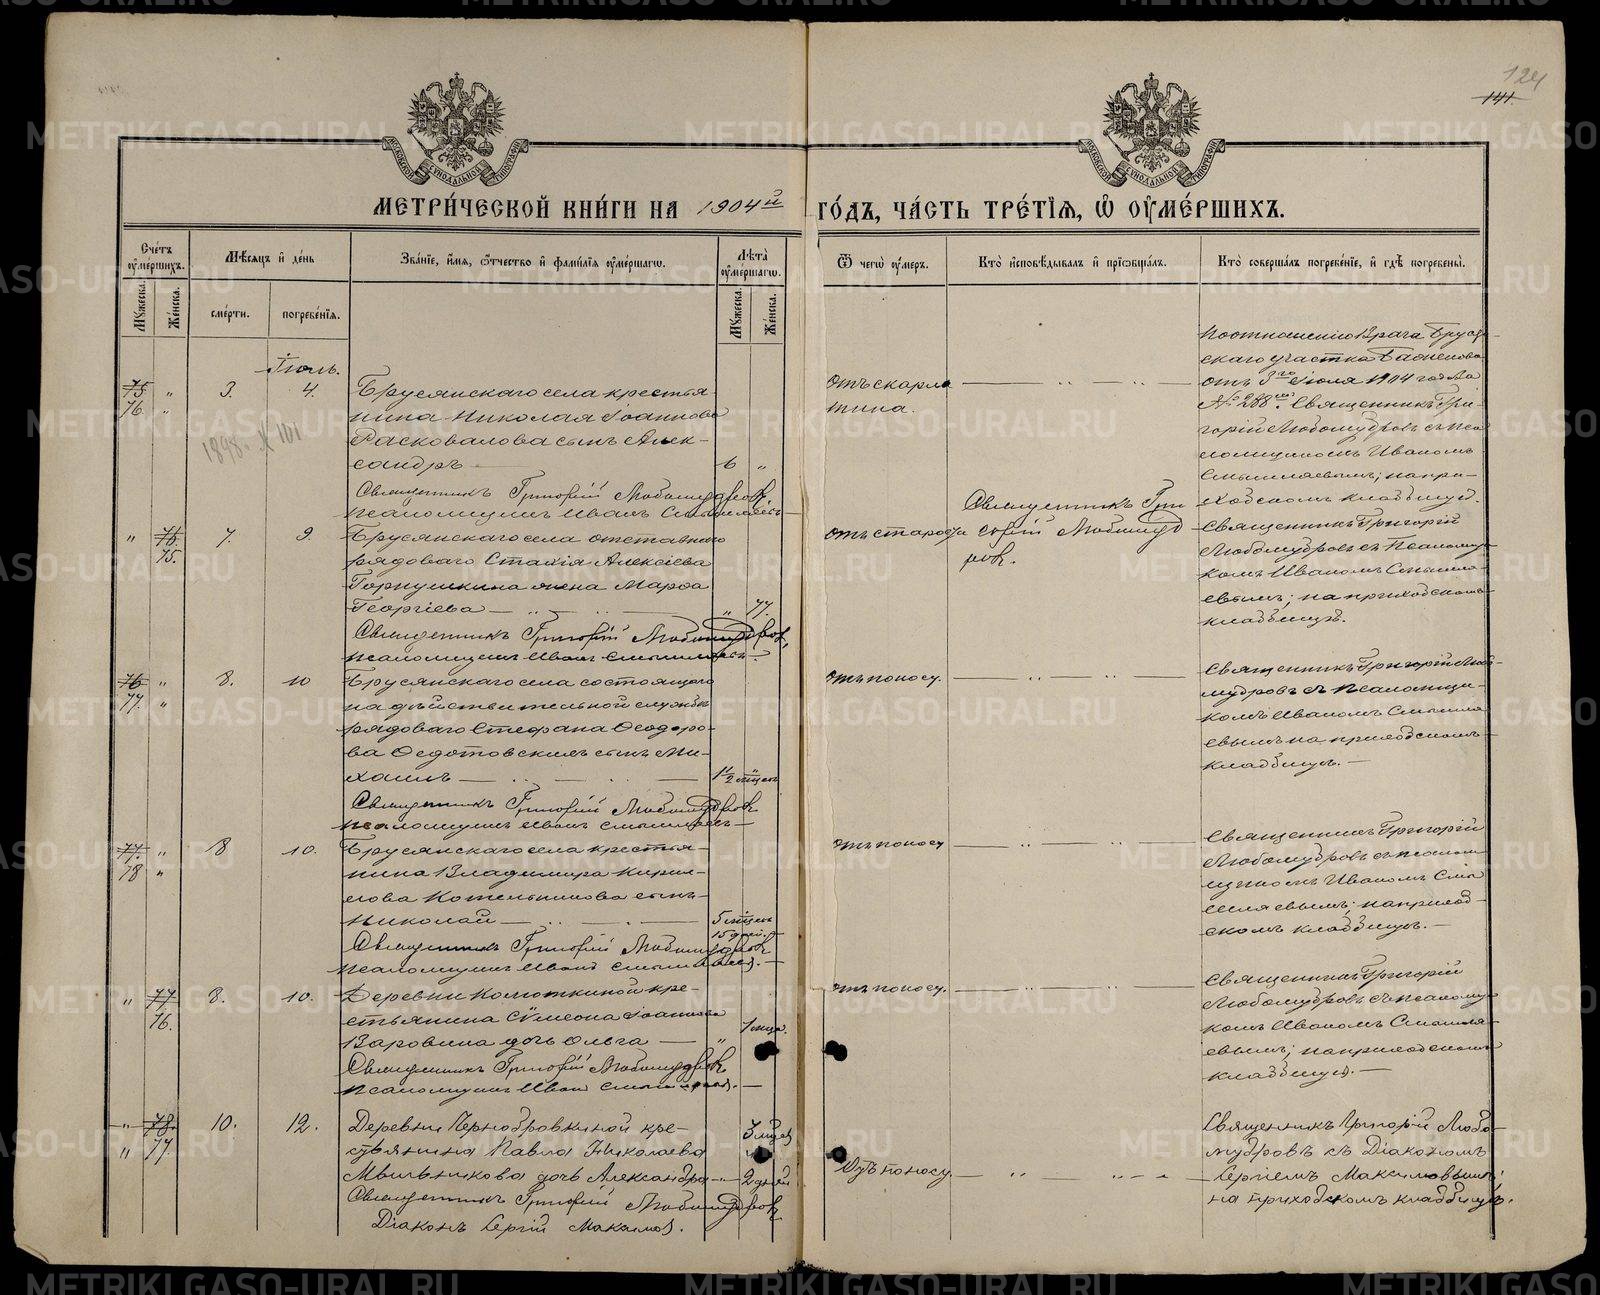 124
141
МОСКОВСКОЙ СѴНОДАЛЬНОЙ ТИПОГРАФІИ
МОСКОВСКОЙ СѴНОДАЛЬНОЙ ТИПОГРАФІИ
МЕТРИ́ЧЕСКОЙ КНИ́ГИ НА 1904й ГО́ДЪ, ЧА́СТЬ ТРЕ́ТІЯ, Ѡ҆ ОУ҆МЕ́РШИХЪ.
Счетъ оумершихъ.
Мꙋжеска.
Женска.
Мѣсяцъ и день
смерти.
погребенія.
Званіе, имя, отчество и фамилія оумершагѡ.
Лѣта оумершагѡ.
Мꙋжеска.
Женска.
Ѿ чегѡ оумеръ.
Кто исповѣдывалъ и пріѡбщалъ.
Кто совершалъ погребеніе, и гдѣ погребены.
Іюль.
75 " 3. 4.
76 "
1898. X 101
Брусянскаго села крестья-
нина Николая Іоаннова
Расковалова сынъ Алек-
сандръ — 6 "
Священникъ Григорій Любомудровъ,
псаломщикъ Иванъ Смышляевъ
отъ скарла
тина.
По отношенію Врача Брусян-
скаго участка
отъ 3го Іюля 1904 года
№ 288. Священникъ Гри-
горій Любомудровъ съ пса
ломщикомъ Иваномъ
Смышляевымъ; на при-
ходскомъ кладбищѣ.
" 76 7. 9.
75.
Брусянскаго села отставнаго
рядоваго Стахія Алексіева
жена Марѳа
Георгіева — " 77.
Священникъ Григорій Любомудровъ,
псаломщикъ Иванъ Смышляевъ
отъ старости
Священникъ Гри
горій Любомуд
ровъ.
Священникъ Григорій
Любомудровъ съ Псаломщи
комъ Иваномъ Смышля-
евымъ; на приходскомъ
кладбищѣ.
76 " 8. 10
77. "
Брусянскаго села состоящаго
на дѣйствительной службѣ
рядоваго Стефана Ѳеодоро-
ва Ѳедотовскихъ сынъ Ми-
хаилъ — 1½ мѣсяц
Священникъ Григорій Любомудровъ
псаломщикъ Иванъ Смышляевъ —
отъ поносу.
Священникъ Григорій Любо
мудровъ съ псаломщи-
комъ Иваномъ Смышля
евымъ на приходскомъ
кладбищѣ. —
77. " 8 10.
78 "
Брусянскаго села крестья-
нина Владимира Кирил-
лова Котельникова сынъ
Николай — 5 мѣсяц
15 дней.
Священникъ Григорій Любомудровъ
псаломщикъ Иванъ Смышляевъ. —
отъ поносу
Священникъ Григорій
Любомудровъ съ псалом
щикомъ Иваномъ Смы
шляевымъ; на приход-
скомъ кладбищѣ. —
" 77 8. 10.
76.
Деревни Колоткиной кре-
стьянина Сѵмеона Іоаннова
Варовина дочь Ольга — " 1 мѣсяц.
Священникъ Григорій Любомудровъ
псаломщикъ Иванъ Смышляевъ. —
отъ поносу.
Священникъ Григорій
Любомудровъ съ псаломщи
комъ Иваномъ Смышля-
евымъ; на приходскомъ
кладбищѣ. —
" 78. 10. 12.
" 77
Деревни Чернобровкиной кре-
стьянина Павла Николаева
Мыльникова дочь Александра — " 3 мѣсяц 2 дней
Священникъ Григорій Любомудровъ
Діаконъ Сергій Максимов.
Отъ поносу.
Священникъ Григорій Любо-
мудровъ съ Діакономъ
Сергіемъ Максимовымъ;
на приходскомъ кладбищѣ.